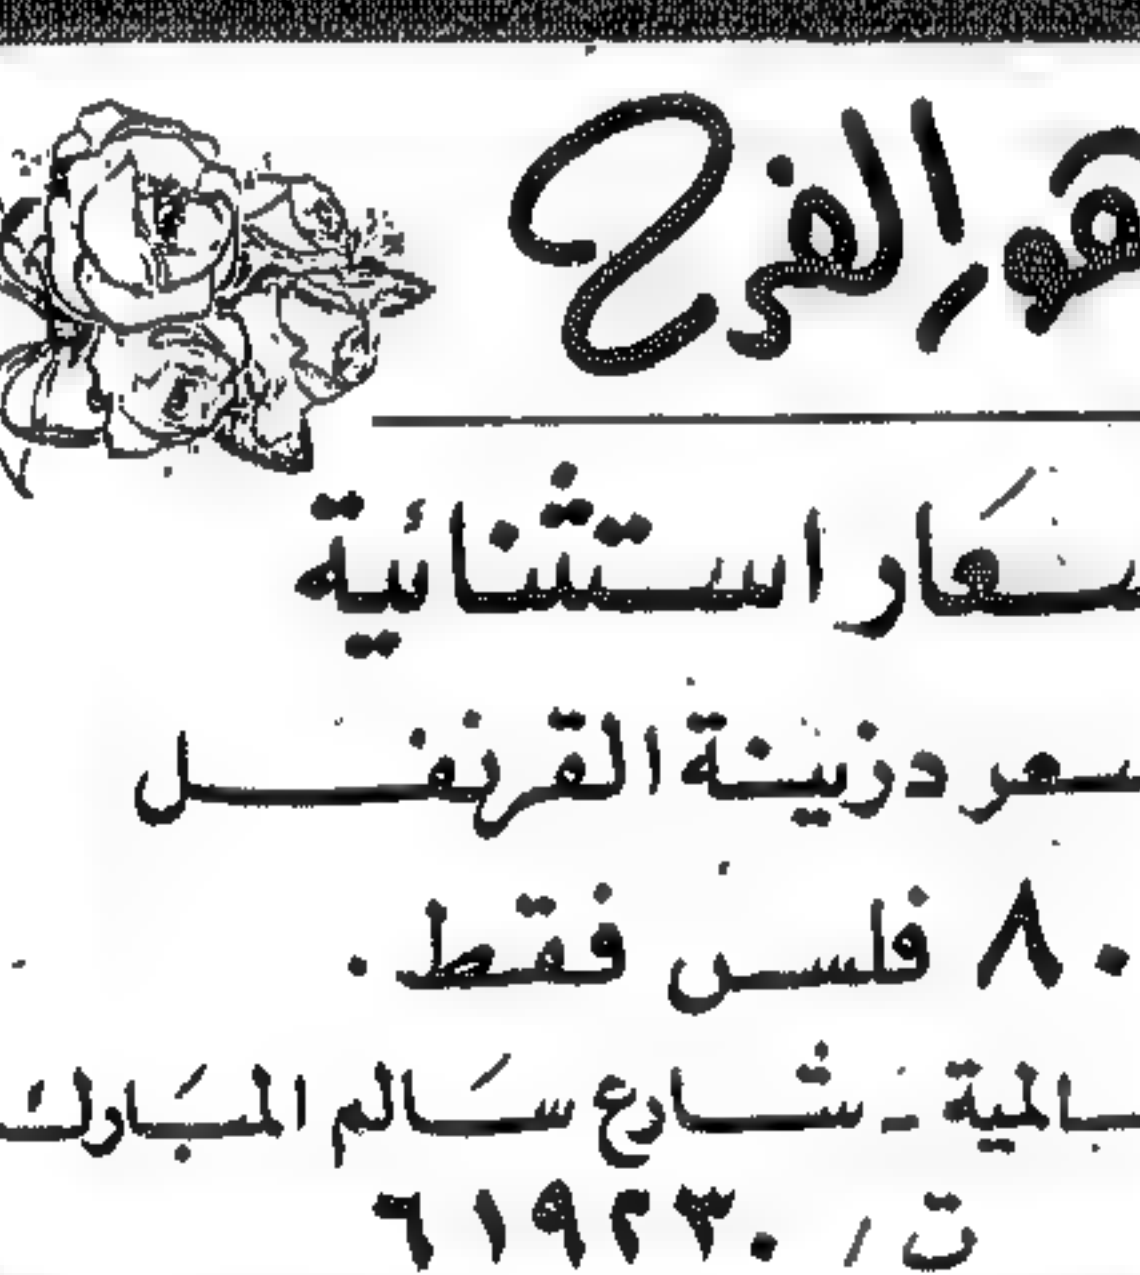 هور الفرح
سعار استثنائية
سعر دزينة القرنفل
٨٠ فلس فقط .
ـالمية - شارع سَالم المبَارك
ت / ٦١٩٢٣٠